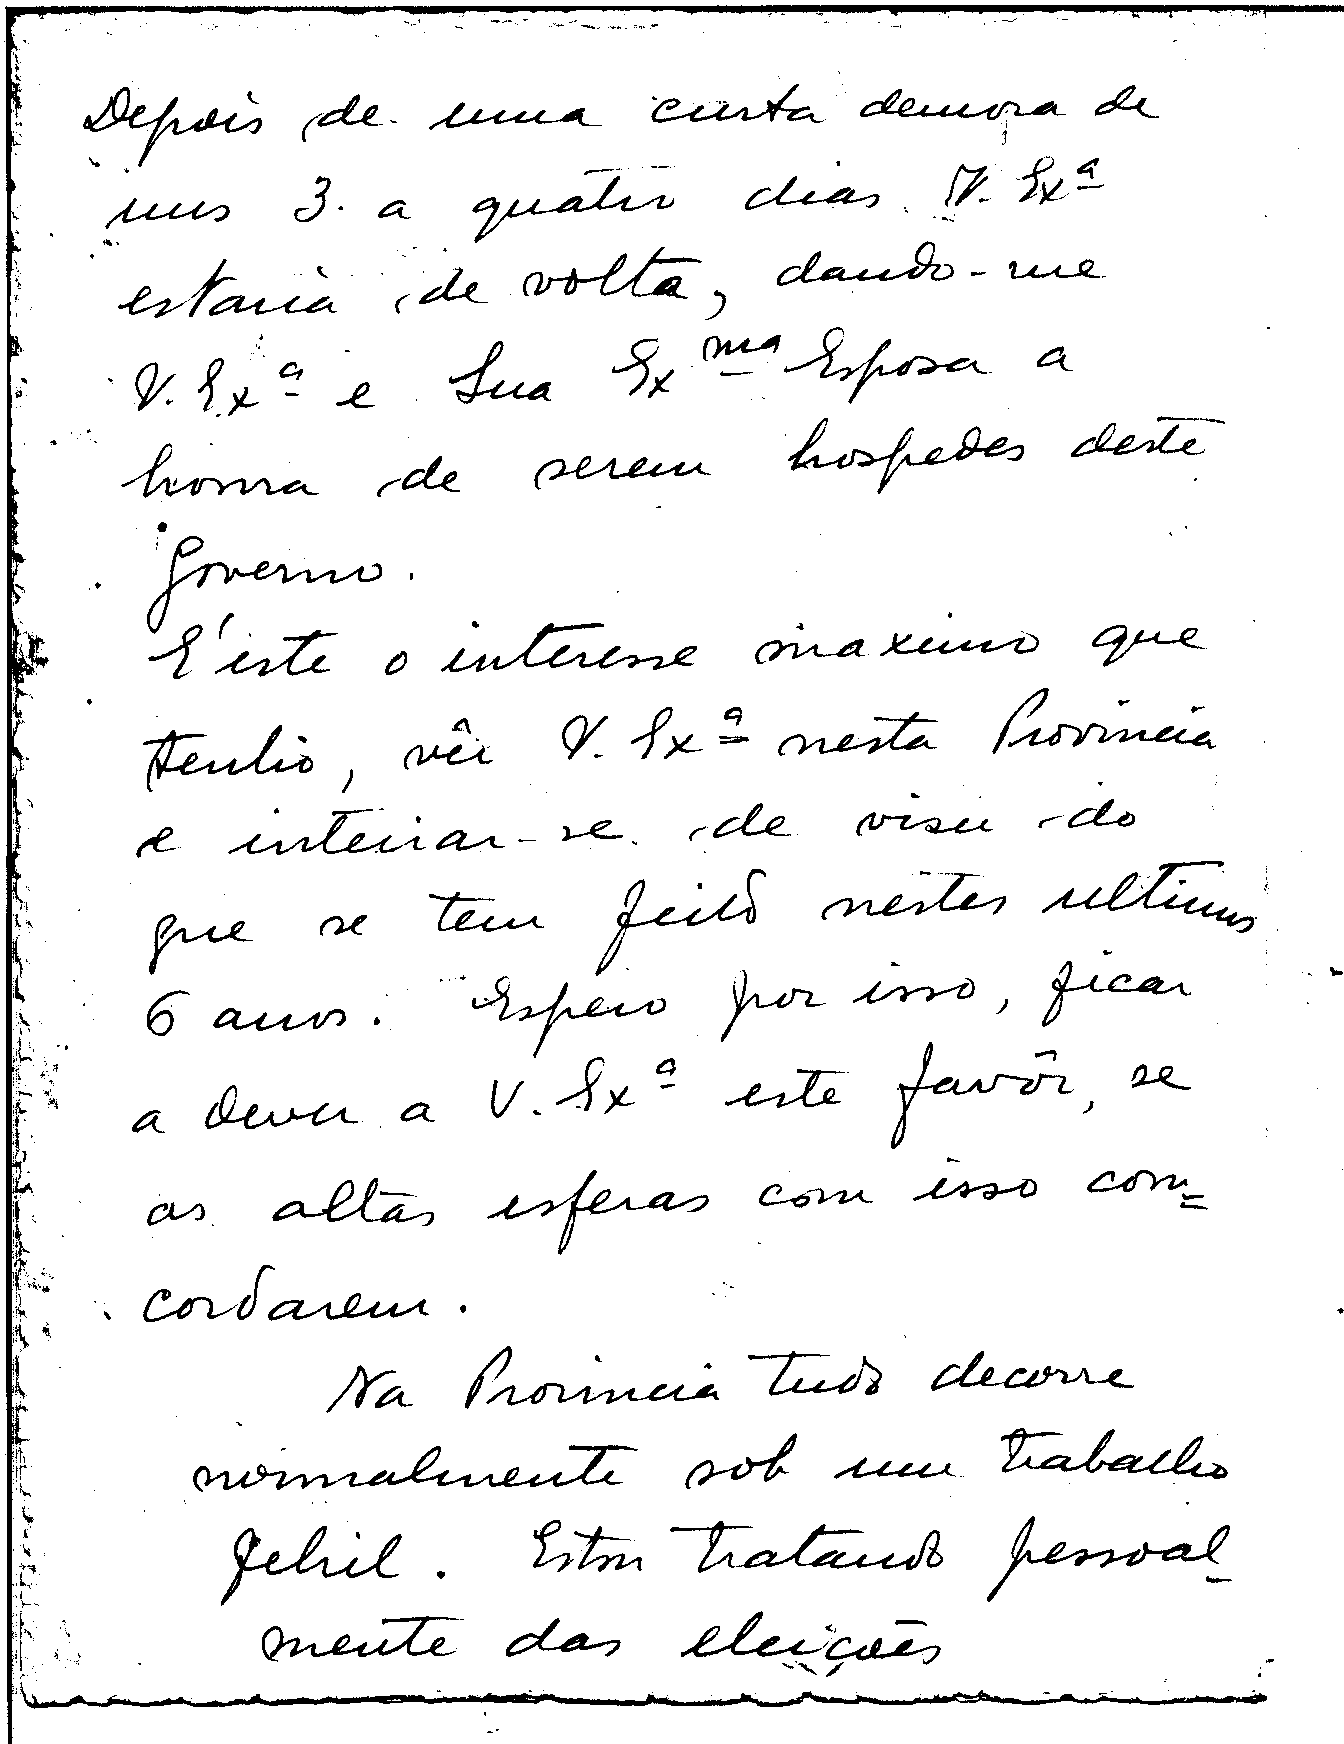 Depois de uma curta demora de
uns 3 a quatro dias V. Exª
estaria de volta, dando-me
V. Exª e Sua Exmª Esposa a
honra de serem hospedes deste
Governo.
E' este o interesse maximo que
tenho, vêr V. Exª nesta Provincia
e inteirar-se de visu do
que se tem feito nestes ultimos
6 anos. Espero por isso, ficar
a dever a V. Exª este favôr, se
as altas esferas com isso con=
cordarem.
Na Provincia tudo decorre
normalmente sob um trabalho
febril. Estou tratando pessoal-
mente das eleições